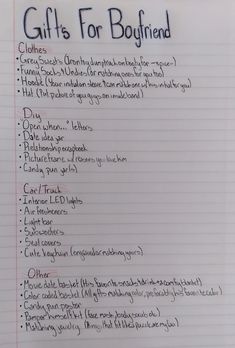 Gifts For Boyfriend
Clothes
• Grey Sweats
• Funny Socks + Undies (or matching ones for you too)
• Hoodie (Your initial on sleeve + can match one w/ his initial for you)
• Hat (Put picture of you guys on inside band)
Diy
• Open when..." letters
• Date idea jar
• Relationship scrapbook
• Picture frame w/ reasons you love him
• Candy pun gifts
Car/Truck
• Interior LED lights
• Air fresheners
• Light bar
• Subwoofers
• Seat covers
• Cute keychain (engraved or matching yours)
Other
• Movie date basket (his favorite snacks + drinks + a comfy blanket)
• Color coded basket (All gifts matching color, preferably his favorite color)
• Candy pun poster
• Pamper himself kit (face mask, body scrub, etc)
• Matching jewelry